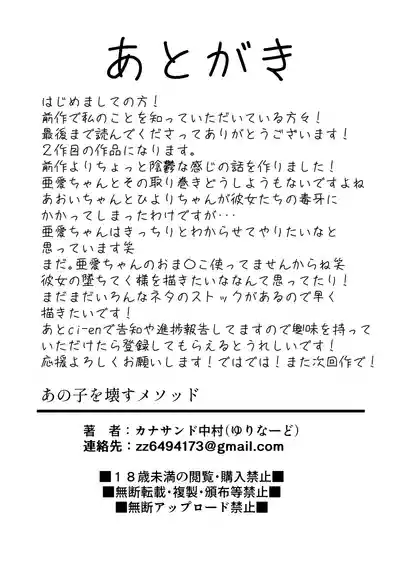 あとがき
はじめましての方！
前作で私のことを知っていただいている方々！
最後まで読んでくださってありがとうございます！
２作目の作品になります。
前作よりちょっと陰鬱な感じの話を作りました！
亜愛ちゃんとその取り巻きどうしようもないですよね
あおいちゃんとひよりちゃんが彼女たちの毒牙に
かかってしまったわけですが…
亜愛ちゃんはきっちりとわからせてやりたいなと
思っています笑
まだ。亜愛ちゃんのおま〇こ使ってませんからね笑
彼女の堕ちてく様を描きたいななんて思ってたり！
まだまだいろんなネタのストックがあるので早く
描きたいです！
あとci-enで告知や進捗報告してますので興味を持って
いただけたら登録してもらえるとうれしいです！
応援よろしくお願いします！ではでは！また次回作で！
あの子を壊すメソッド
著　者：カナサンド中村(ゆりなーど)
連絡先：zz6494173@gmail.com
■１８歳未満の閲覧・購入禁止■
■無断転載・複製・頒布等禁止■
■無断アップロード禁止■